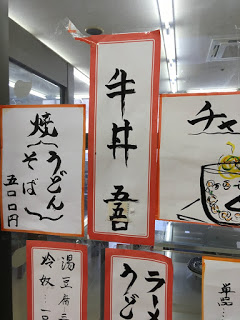 牛丼 吾
焼 うどん
そば
五〇〇円
チャ
湯豆腐 三
冷奴 … 一
ラーメ
うど
単品 …